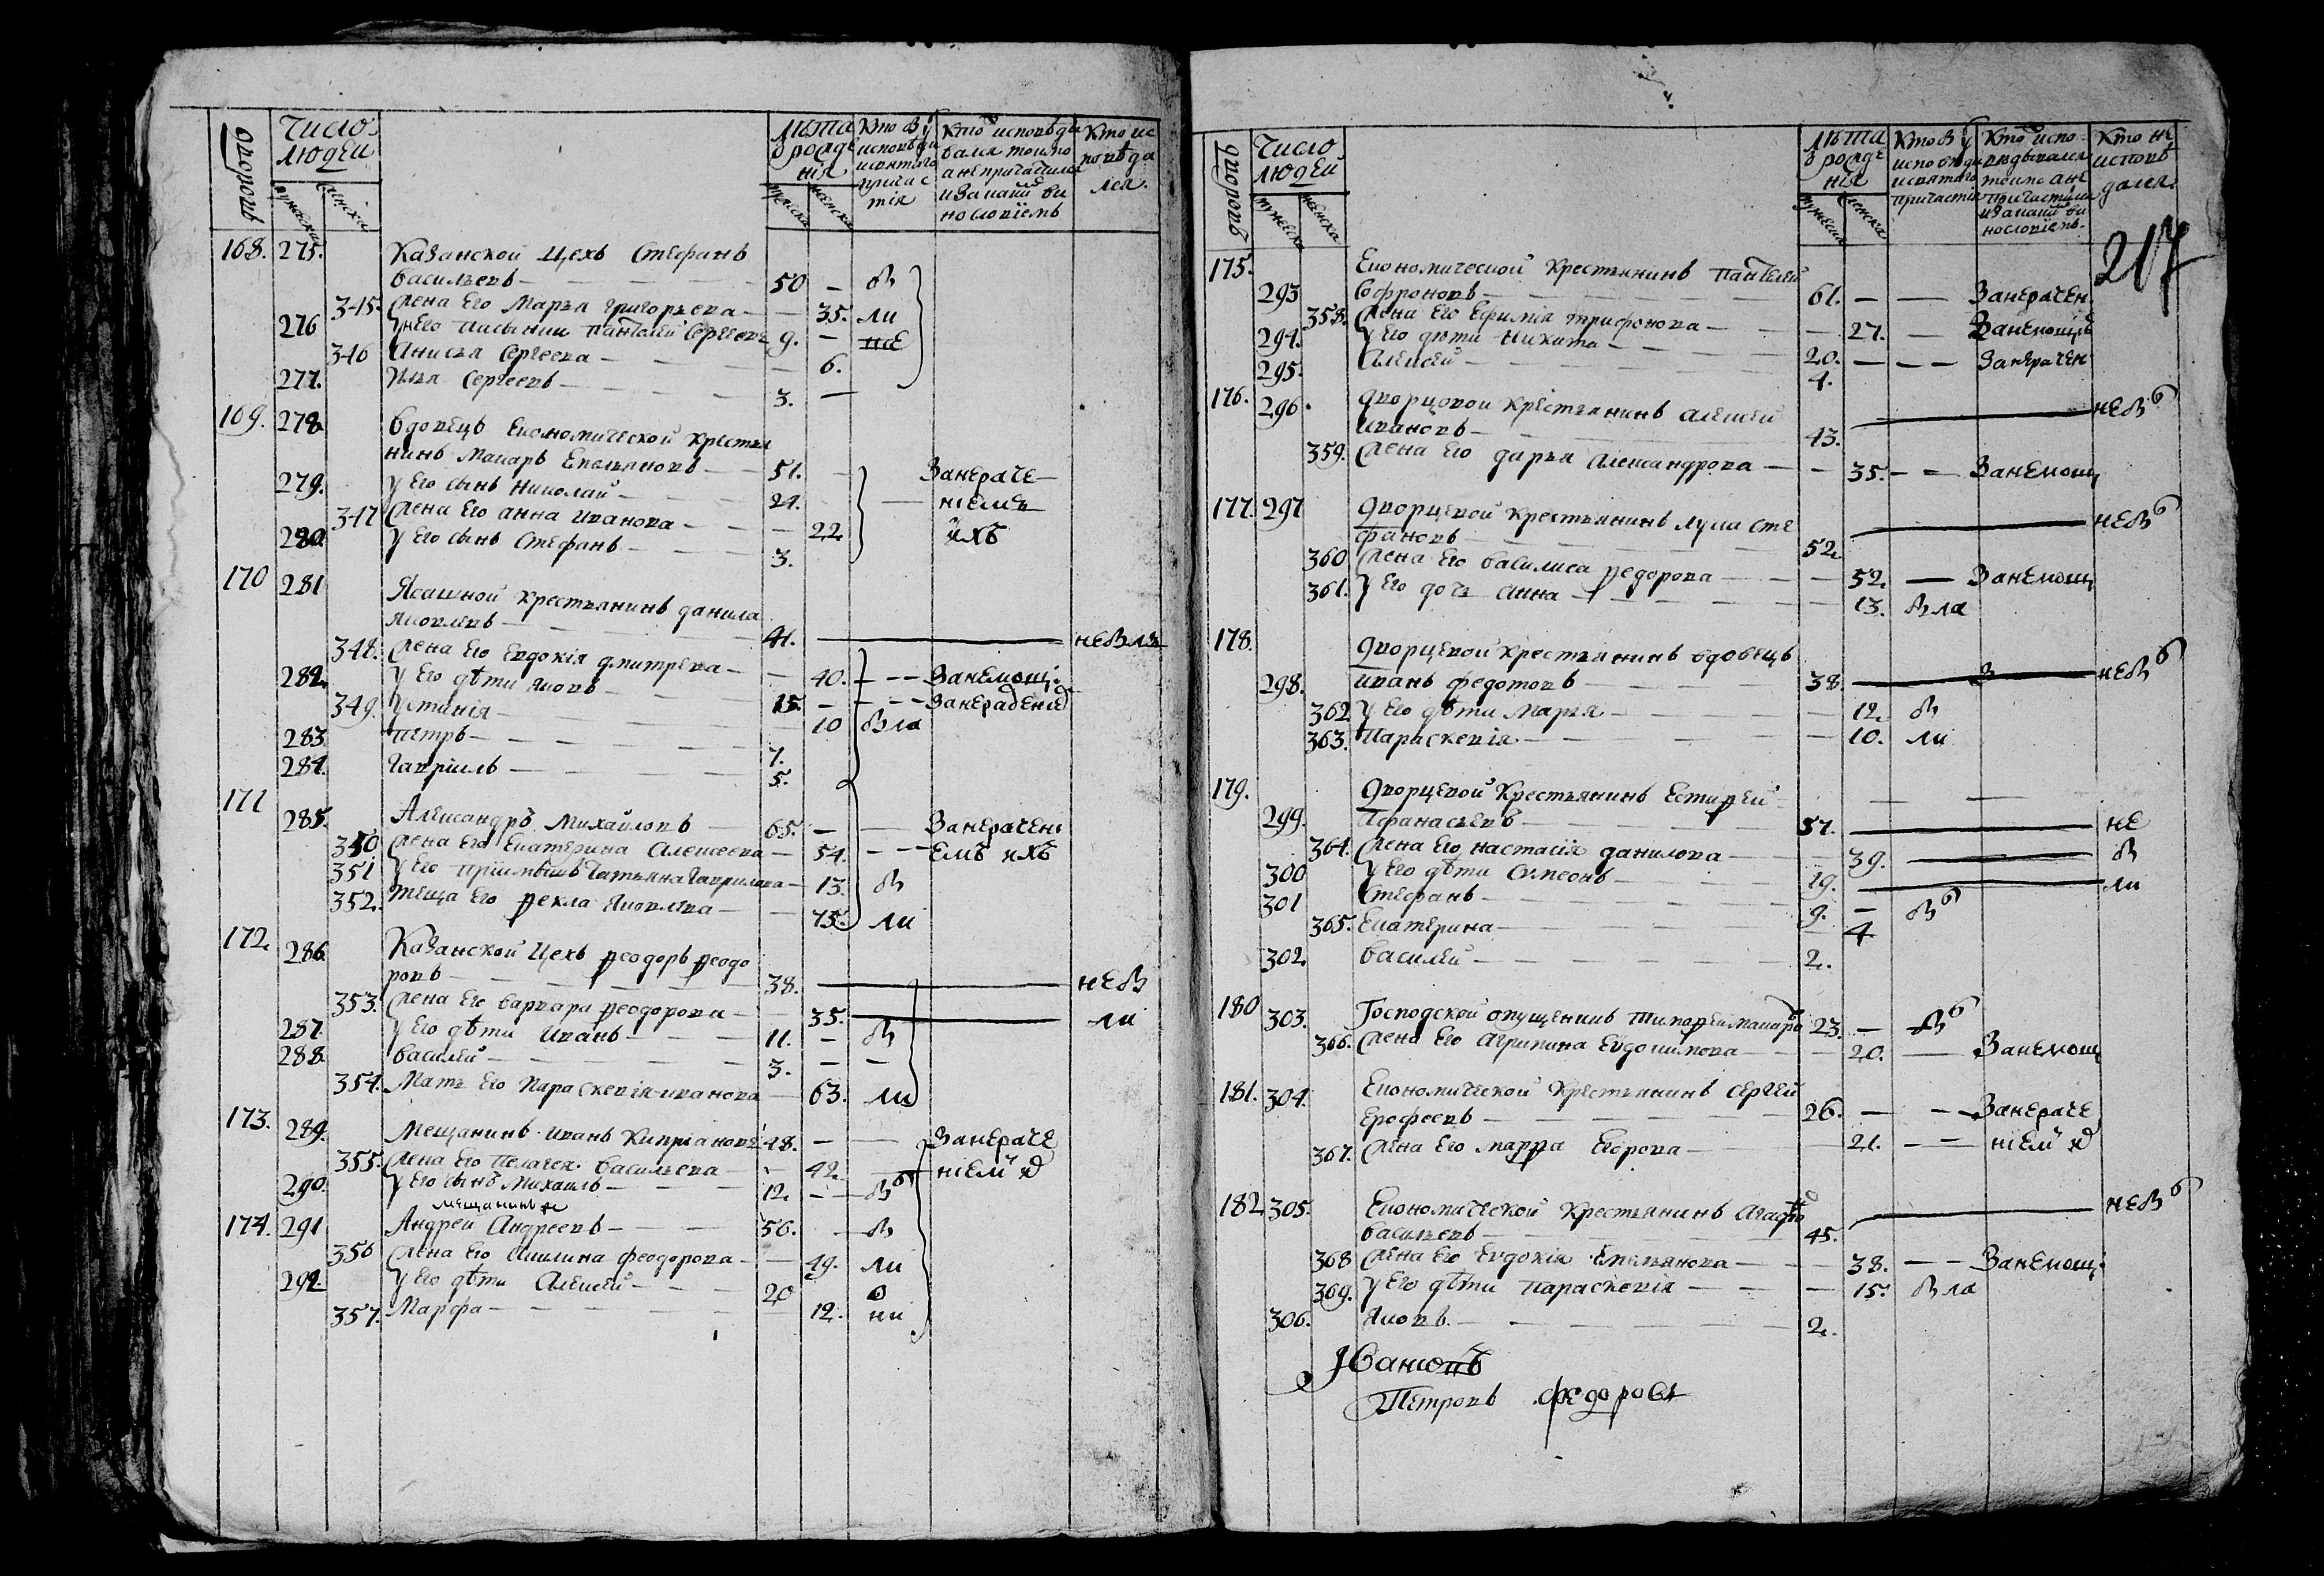 дворовъ
Число людей
мужеска
женска
лѣта от рождения
мужеска
женска
Кто был у исповѣди и святаго причастия
Кто исповѣдывался токмо а не причастился и за каким винословіемъ
Кто не исповѣдался.
168. 275. Казанской Цехъ Стефанъ
васильевъ 50 - бы
345. Жена Его Марья григорьева 35. ли
276 У него пасынки Пантелей Сергеевъ 9. - не
346 Анисья Сергеева - 6.
277. Илья Сергеевъ 3. -
169. 278. вдовецъ Економической крестья
нинъ Макаръ Емельяновъ 51. Занераче
279. У Его сынъ Николай 24. ніемъ
347 Жена Его анна иванова - 22 ихъ
280. У Его сынъ Стефанъ 3.
170 281 Ясашной крестьянинъ данила
Яковлевъ 41. небыль
348. Жена Его Евдокія дмитрева - 40. Занемощ.
282. У Его дѣти Яковъ 15. - Занерадение
349. Устинія - 10 была
283. Петръ 7.
284. Гавріилъ 5.
171 285. Александръ Михайловъ 65. - Занерачені
350 Жена Его Екатерина Алексеева - 54. Емъ ихъ
351 У Его пріимышъ Татьяна Гаврилова - 13. бы
352. теща Его Ѳекла Яковлева - 75. ли
172. 286. Казанской Цехъ Ѳеодоръ Ѳеодо
ровъ 38. небы
353. Жена Его варвара Ѳеодорова - 35. ли
287. У Его дѣти Иванъ 11. - бы
288. василей 3. - -
354. Мать Его Параскевія иванова 63. ли
173. 289. Мещанинъ иванъ Кипріановъ 48. - Занераче
355. Жена Его Пелагея васильева - 42. ніемъ
290. У Его сынъ Михаилъ 12. - бы
мещанинъ
174. 291 Андрей Андреевъ 56. - бы
356 Жена Его Акилина феодорова - 49. ли
292. У Его дѣти Алексей 20
357. Марфа - 12. ни
дворовъ
Число людей
мужеска
женска
лѣта от рождения
мужеска
женска
Кто был у исповѣди и святаго причастия
Кто исповѣдывался токмо а не причастился и за каким винословіемъ.
Кто не исповѣдался.
217
175. Економической крестьянинъ Пантелей
293 Софроновъ 61. - - Занерачен.
358. Жена Его Ефимія трифонова - 27. - Занемощію
294. У Его дѣти Никита 20. - - Занерачен
295. Алексей 4.
176. 296. дворцовой крестьянинъ алексей
ивановъ 43. небы
359. Жена Его дарья Александрова - 35. - - Занемощ
177. 297 дворцевой крестьянинъ лука сте
фановъ 52. небы
360 Жена Его василиса Ѳедорова - 52. - Занемощ
361. У Его дочь Анна - 13. была
178. дворцевой крестьянинъ вдовецъ
298. иванъ федотовъ 38. небы
362. У Его дѣти Марья - 12. бы
363. Параскевія - 10. ли
179. дворцевой крестьянинъ Естиѳей
299. Афанасьевъ 57. не
364. Жена Его настасія данилова - 39. бы
300 У Его дѣти Симеонъ 19. ли
301 Стефанъ 9. - бы
365. Екатерина - 4.
302. василей 2.
180 303. Господской отпущеникъ Тимоѳей макаровъ 23. - бы
366. Жена Его Агрипина Евдокимова - 20. - Занемощ
181. 304. Економической крестьянинъ Сергей
Ерофеевъ 26. - - Занераче
367. Жена Его марѳа Егорова 21. - - ніемъ
182 305. Економической крестьянинъ Агафо
васильевъ 45. небы
368 Жена Его Евдокія Емельянова - 38. - - Занемощ.
369. У Его дѣти Параскевія - 15. была
306. Яковъ 2.
Петровъ федоровъ